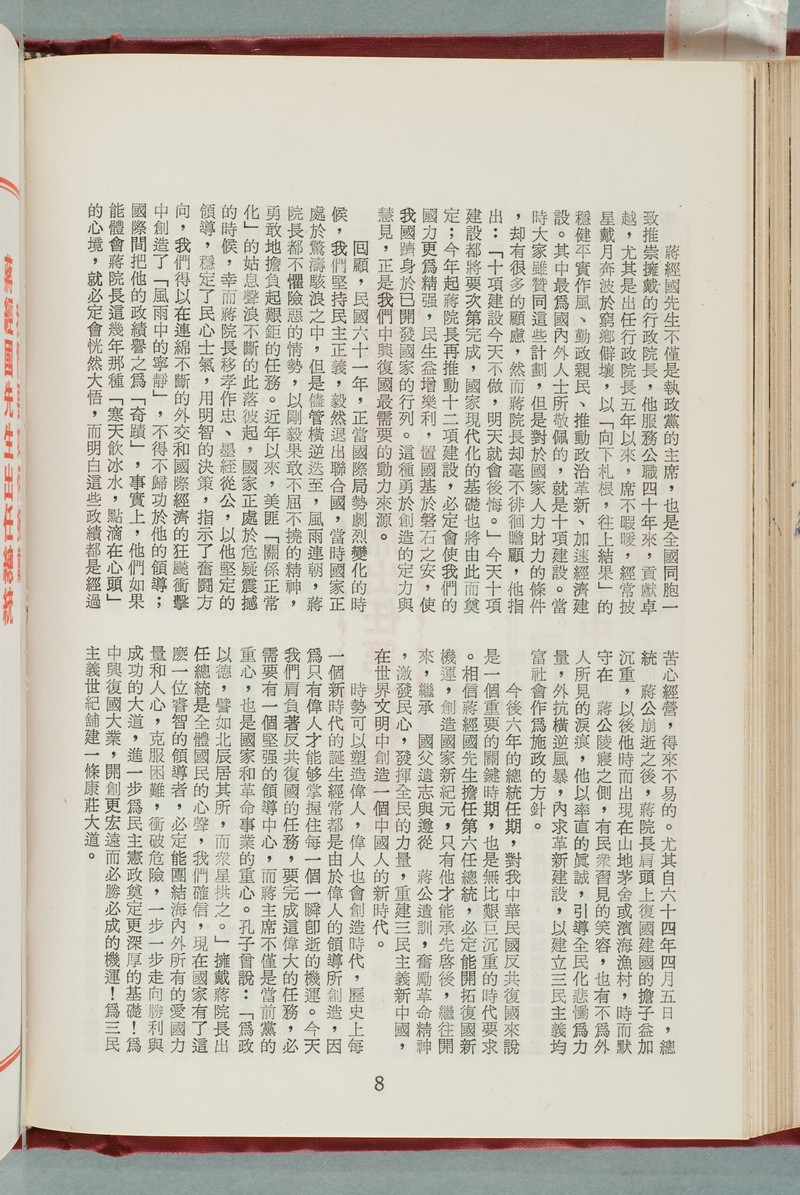 蔣經國先生不僅是執政黨的主席，也是全國同胞一
致推崇擁戴的行政院長，他服務公職四十年來，貢獻卓
越，尤其是出任行政院長五年以來，席不暇暖，經常披
星戴月奔波於窮鄉僻壤，以「向下札根，往上結果」的
穩健平實作風、勤政親民、推動政治革新、加速經濟建
設。其中最爲國內外人士所敬佩的，就是十項建設。當
時大家雖贊同這些計劃，但是對於國家人力財力的條件
，却有很多的顧慮，然而蔣院長却毫不徘徊瞻顧，他指
出：「十項建設今天不做，明天就會後悔。」今天十項
建設都將要次第完成，國家現代化的基礎也將由此而奠
定；今年起蔣院長再推動十二項建設，必定會使我們的
國力更爲精强，民生益增樂利，置國基於磐石之安，使
我國躋身於已開發國家的行列。這種勇於創造的定力與
慧見，正是我們中興復國最需要的動力來源。
回顧，民國六十一年，正當國際局勢劇烈變化的時
候，我們堅持民主正義，毅然退出聯合國，當時國家正
處於驚濤駭浪之中，但是儘管橫逆迭至，風雨連朝，蔣
院長都不懼險惡的情勢，以剛毅果敢不屈不撓的精神，
勇敢地擔負起艱鉅的任務。近年以來，美匪「關係正常
化」的姑息聲浪不斷的此落彼起，國家正處於危疑震撼
的時候，幸而蔣院長移孝作忠、墨絰從公，以他堅定的
領導，穩定了民心士氣，用明智的決策，指示了奮鬪方
向，我們得以在連綿不斷的外交和國際經濟的狂飈衝擊
中創造了「風雨中的寧靜」，不得不歸功於他的領導；
國際間把他的政績譽之爲「奇蹟」，事實上，他們如果
能體會蔣院長這幾年那種「寒天飲冰水，點滴在心頭」
的心境，就必定會恍然大悟，而明白這些政績都是經過
苦心經營，得來不易的。尤其自六十四年四月五日，總
統　蔣公崩逝之後，蔣院長肩頭上復國建國的擔子益加
沉重，以後他時而出現在山地茅舍或濱海漁村，時而默
守在　蔣公陵寢之側，有民衆習見的笑容，也有不爲外
人所見的淚痕，他以率直的眞誠，引導全民化悲慟爲力
量，外抗橫逆風暴，內求革新建設，以建立三民主義均
富社會作爲施政的方針。
今後六年的總統任期，對我中華民國反共復國來說
是一個重要的關鍵時期，也是無比艱巨沉重的時代要求
。相信蔣經國先生擔任第六任總統，必定能開拓復國新
機運，創造國家新紀元，只有他才能承先啓後，繼往開
來，繼承　國父遺志與遵從　蔣公遺訓，奮勵革命精神
，激發民心，發揮全民的力量，重建三民主義新中國，
在世界文明中創造一個中國人的新時代。
時勢可以塑造偉人，偉人也會創造時代，歷史上每
一個新時代的誕生經常都是由於偉人的領導所創造，因
爲只有偉人才能够掌握住每一個一瞬卽逝的機運。今天
我們肩負著反共復國的任務，要完成這偉大的任務，必
需要有一個堅强的領導中心，而蔣主席不僅是當前黨的
重心，也是國家和革命事業的重心。孔子曾說：「爲政
以德，譬如北辰居其所，而衆星拱之。」擁戴蔣院長出
任總統是全體國民的心聲，我們確信，現在國家有了這
麼一位睿智的領導者，必定能團結海內外所有的愛國力
量和人心，克服困難，衝破危險，一步一步走向勝利與
成功的大道，進一步爲民主憲政奠定更深厚的基礎！爲
中興復國大業，開創更宏遠而必勝必成的機運！爲三民
主義世紀舖建一條康莊大道。
8
蔣經國先生出任總統